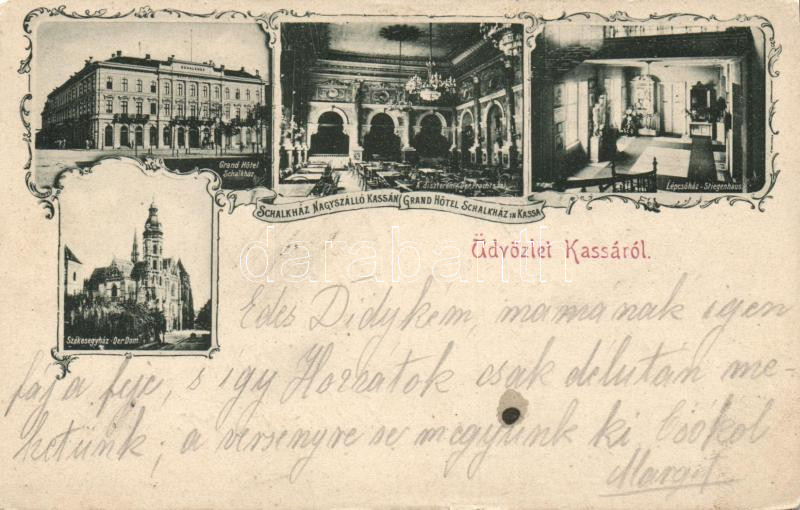 SCHALKHÁZ
Grand Hôtel
Schalkház
A díszterem - Der Prachtsaal
Lépcsőház - Stiegenhaus
SCHALKHÁZ NAGYSZÁLLÓ KASSÁN GRAND HÔTEL SCHALKHÁZ IN KASSA
Székesegyház - Der Dom
Üdvözlet Kassáról.
darabanth
Édes Didykem, mamának igen
fáj a feje, s így Hozzátok csak délután me-
hetünk; a versenyre se megyünk ki Csókol
Margit